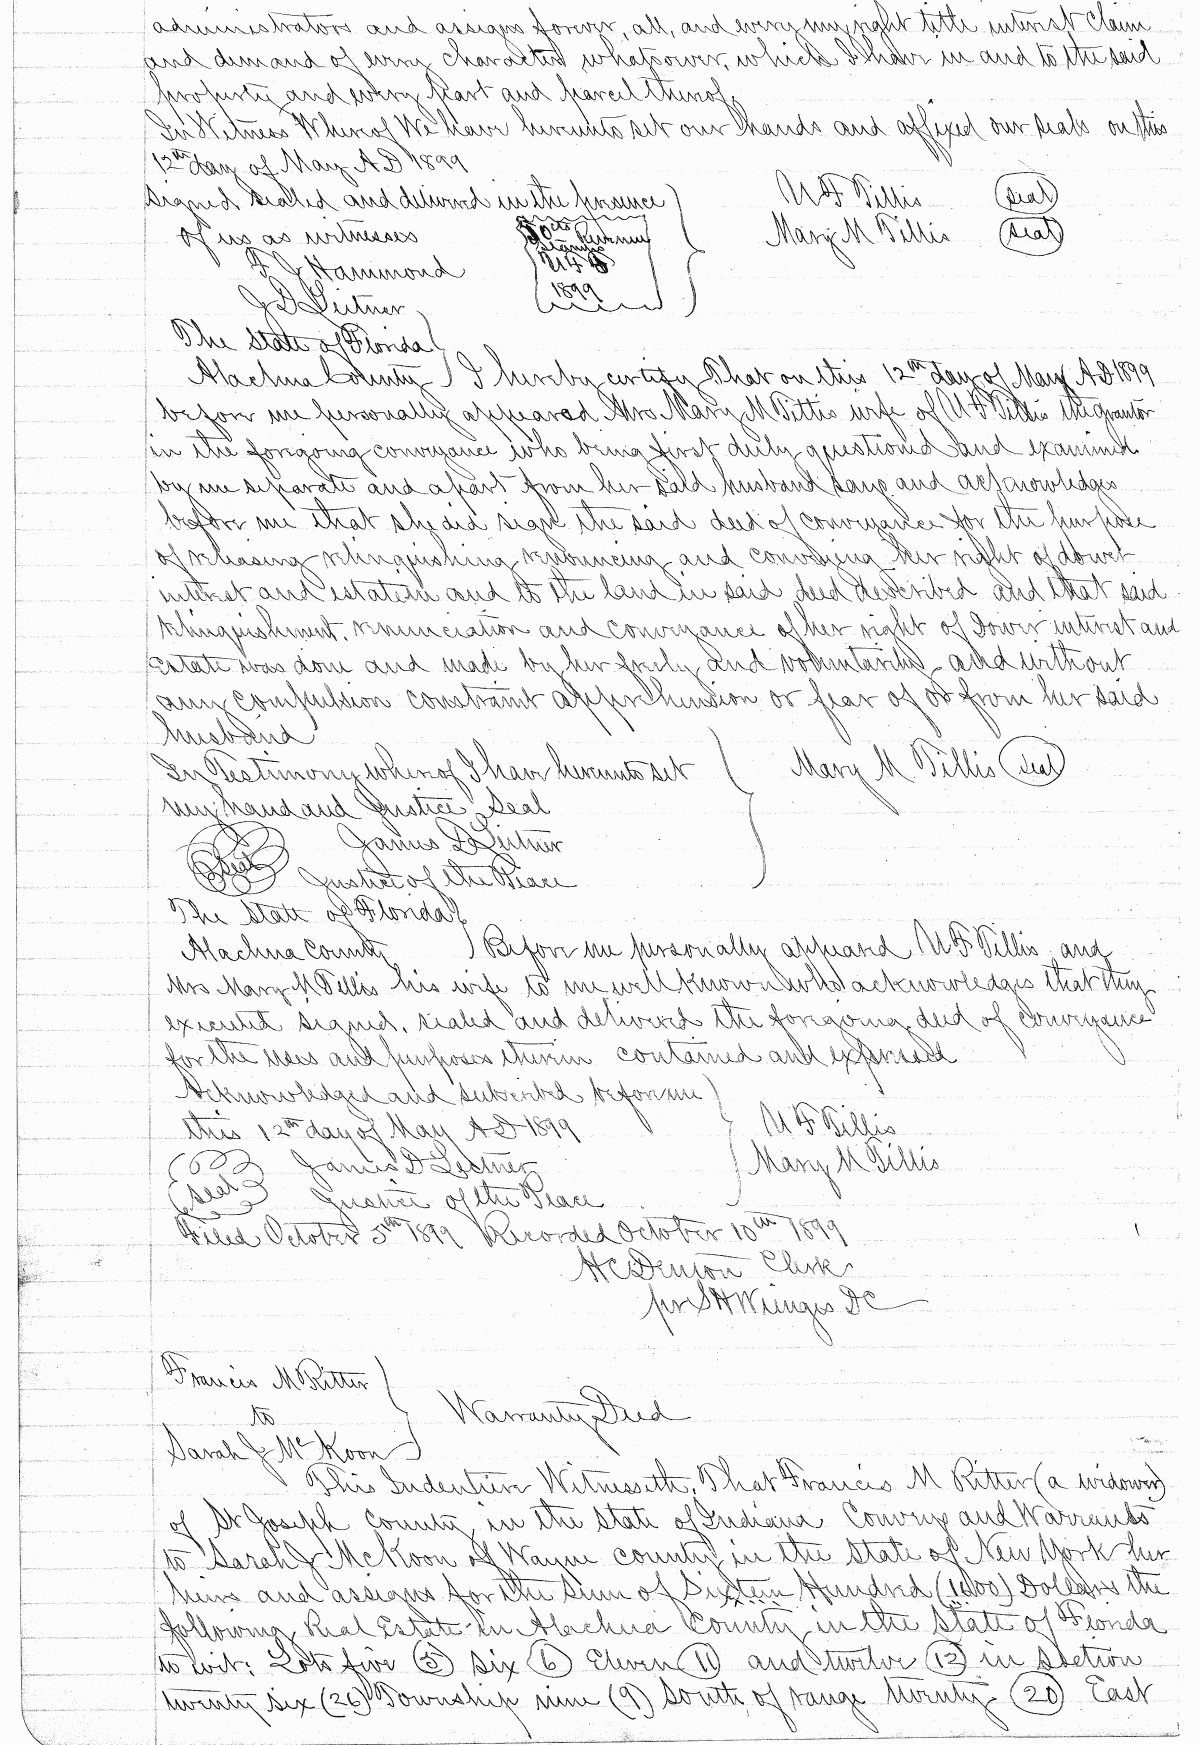 administrators and assigns forever, all, and every my right title interest claim
and demand of every character whatsoever, which I have in and to the said
property and every part and parcel thereof.
In Witness Whereof We have hereunto set our hands and affixed our seals on this
12th day of May A.D 1899
Signed sealed and delivered in the presence
of us as witnesses
U F Tillis (seal)
Mary M Tillis (seal)
50 cts Revenue
Stamps
1899
F J Hammond
J D Leitner
The State of Florida
Alachua County I hereby certify That on this 12th day of May A.D 1899
before me personally appeared Mrs Mary M Tillis wife of U F Tillis the grantor
in the foregoing conveyance who being first duly questioned and examined
by me separate and apart from her said husband says and acknowledges
before me that she did sign the said deed of conveyance for the purpose
of releasing relinquishing, renouncing and conveying her right of dower
interest and estate in and to the land in said deed described and that said
relinquishment, renunciation and conveyance of her right of Dower interest and
Estate was done and made by her freely and voluntarily and without
any compulsion constraint apprehension or fear of or from her said
husband
In Testimony whereof I have hereunto set
my hand and Justice Seal
Mary M Tillis (seal)
James D Leitner
(seal) Justice of the Peace
The State of Florida
Alachua County Before me personally appeared U F Tillis and
Mrs Mary M Tillis his wife to me well known who acknowledges that they
executed signed, sealed and delivered the foregoing deed of conveyance
for the uses and purposes therein contained and expressed
Acknowledged and subscribed before me
this 12th day of May A.D 1899
U F Tillis
Mary M Tillis
James D Leitner
(seal) Justice of the Peace
Filed October 5th 1899 Recorded October 10th 1899
H C Denton Clerk
pr S H Wienges D C
Francis M Ritter
to
Warranty Deed
Sarah J McKoon
This Indenture Witnesseth, That Francis M Ritter (a widower)
of St Joseph County in the State of Indiana Conveys and Warrants
to Sarah J McKoon of Wayne county in the State of New York her
heirs and assigns for the Sum of Sixteen Hundred (1600) Dollars the
following Real Estate in Alachua County in the State of Florida
to wit: Lots five (5) six (6) Eleven (11) and twelve (12) in Section
twenty six (26) Township nine (9) South, of range twenty (20) East